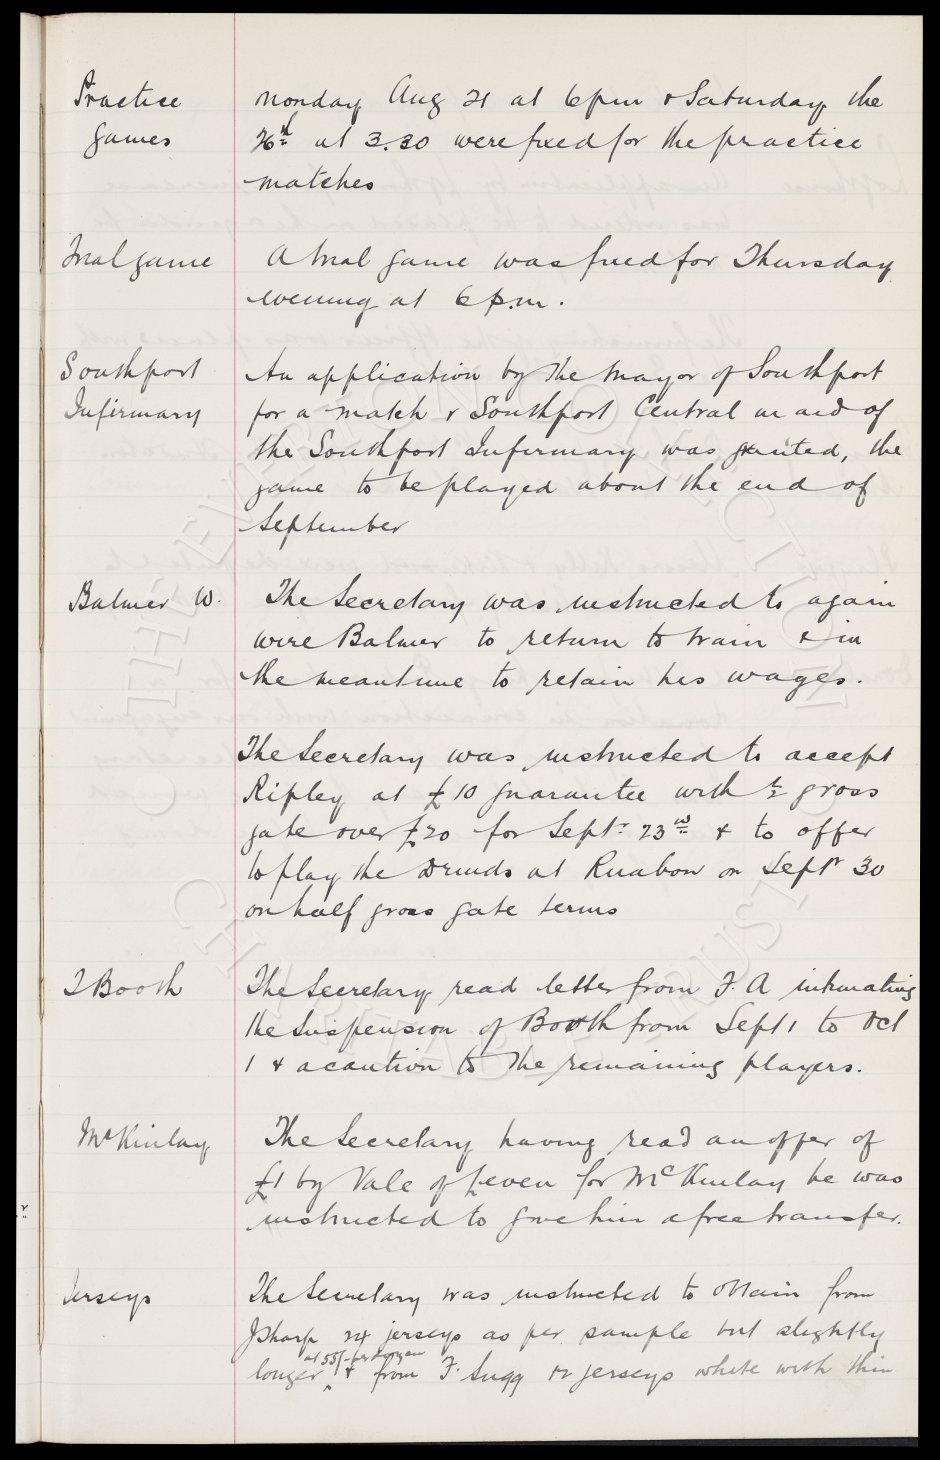 Practice
Games
Monday Aug 21 at 6pm & Saturday the
26th at 3.30 were fixed for the practice
matches
Trial game
A trial game was fixed for Thursday
evening at 6 p.m.
Southport
Infirmary
An application by The Mayor of Southport
for a match v Southport Central in aid of
the Southport Infirmary was granted, the
game to be played about the end of
September
Balmer W.
The Secretary was instructed to again
wire Balmer to return to train & in
the meantime to retain his wages.
The Secretary was instructed to accept
Ripley at £10 guarantee with ½ gross
gate over £20 for Septr 23rd & to offer
to play the Druids at Ruabon on Septr 30
on half gross gate terms
T Booth
The Secretary read letter from F.A intimating
the Suspension of Booth from Sept 1 to Oct
1 & a caution to the remaining players.
McKinlay
The Secretary having read an offer of
£1 by Vale of Leven for McKinlay he was
instructed to give him a free transfer.
Jerseys
The Secretary was instructed to obtain from
J Sharp 24 jerseys as per sample but slightly
at 55/- per dozen
longer & from F. Sugg 12 jerseys white with thin